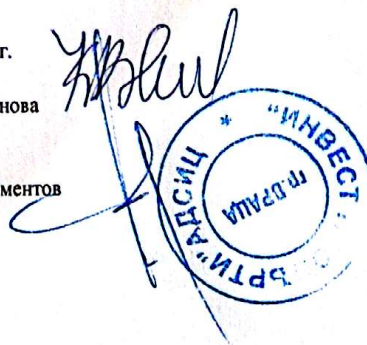 г.
нова
ментов
"ИНВЕСТ ЪРТИ" АДСИЦ *
гр. ВРАЦА